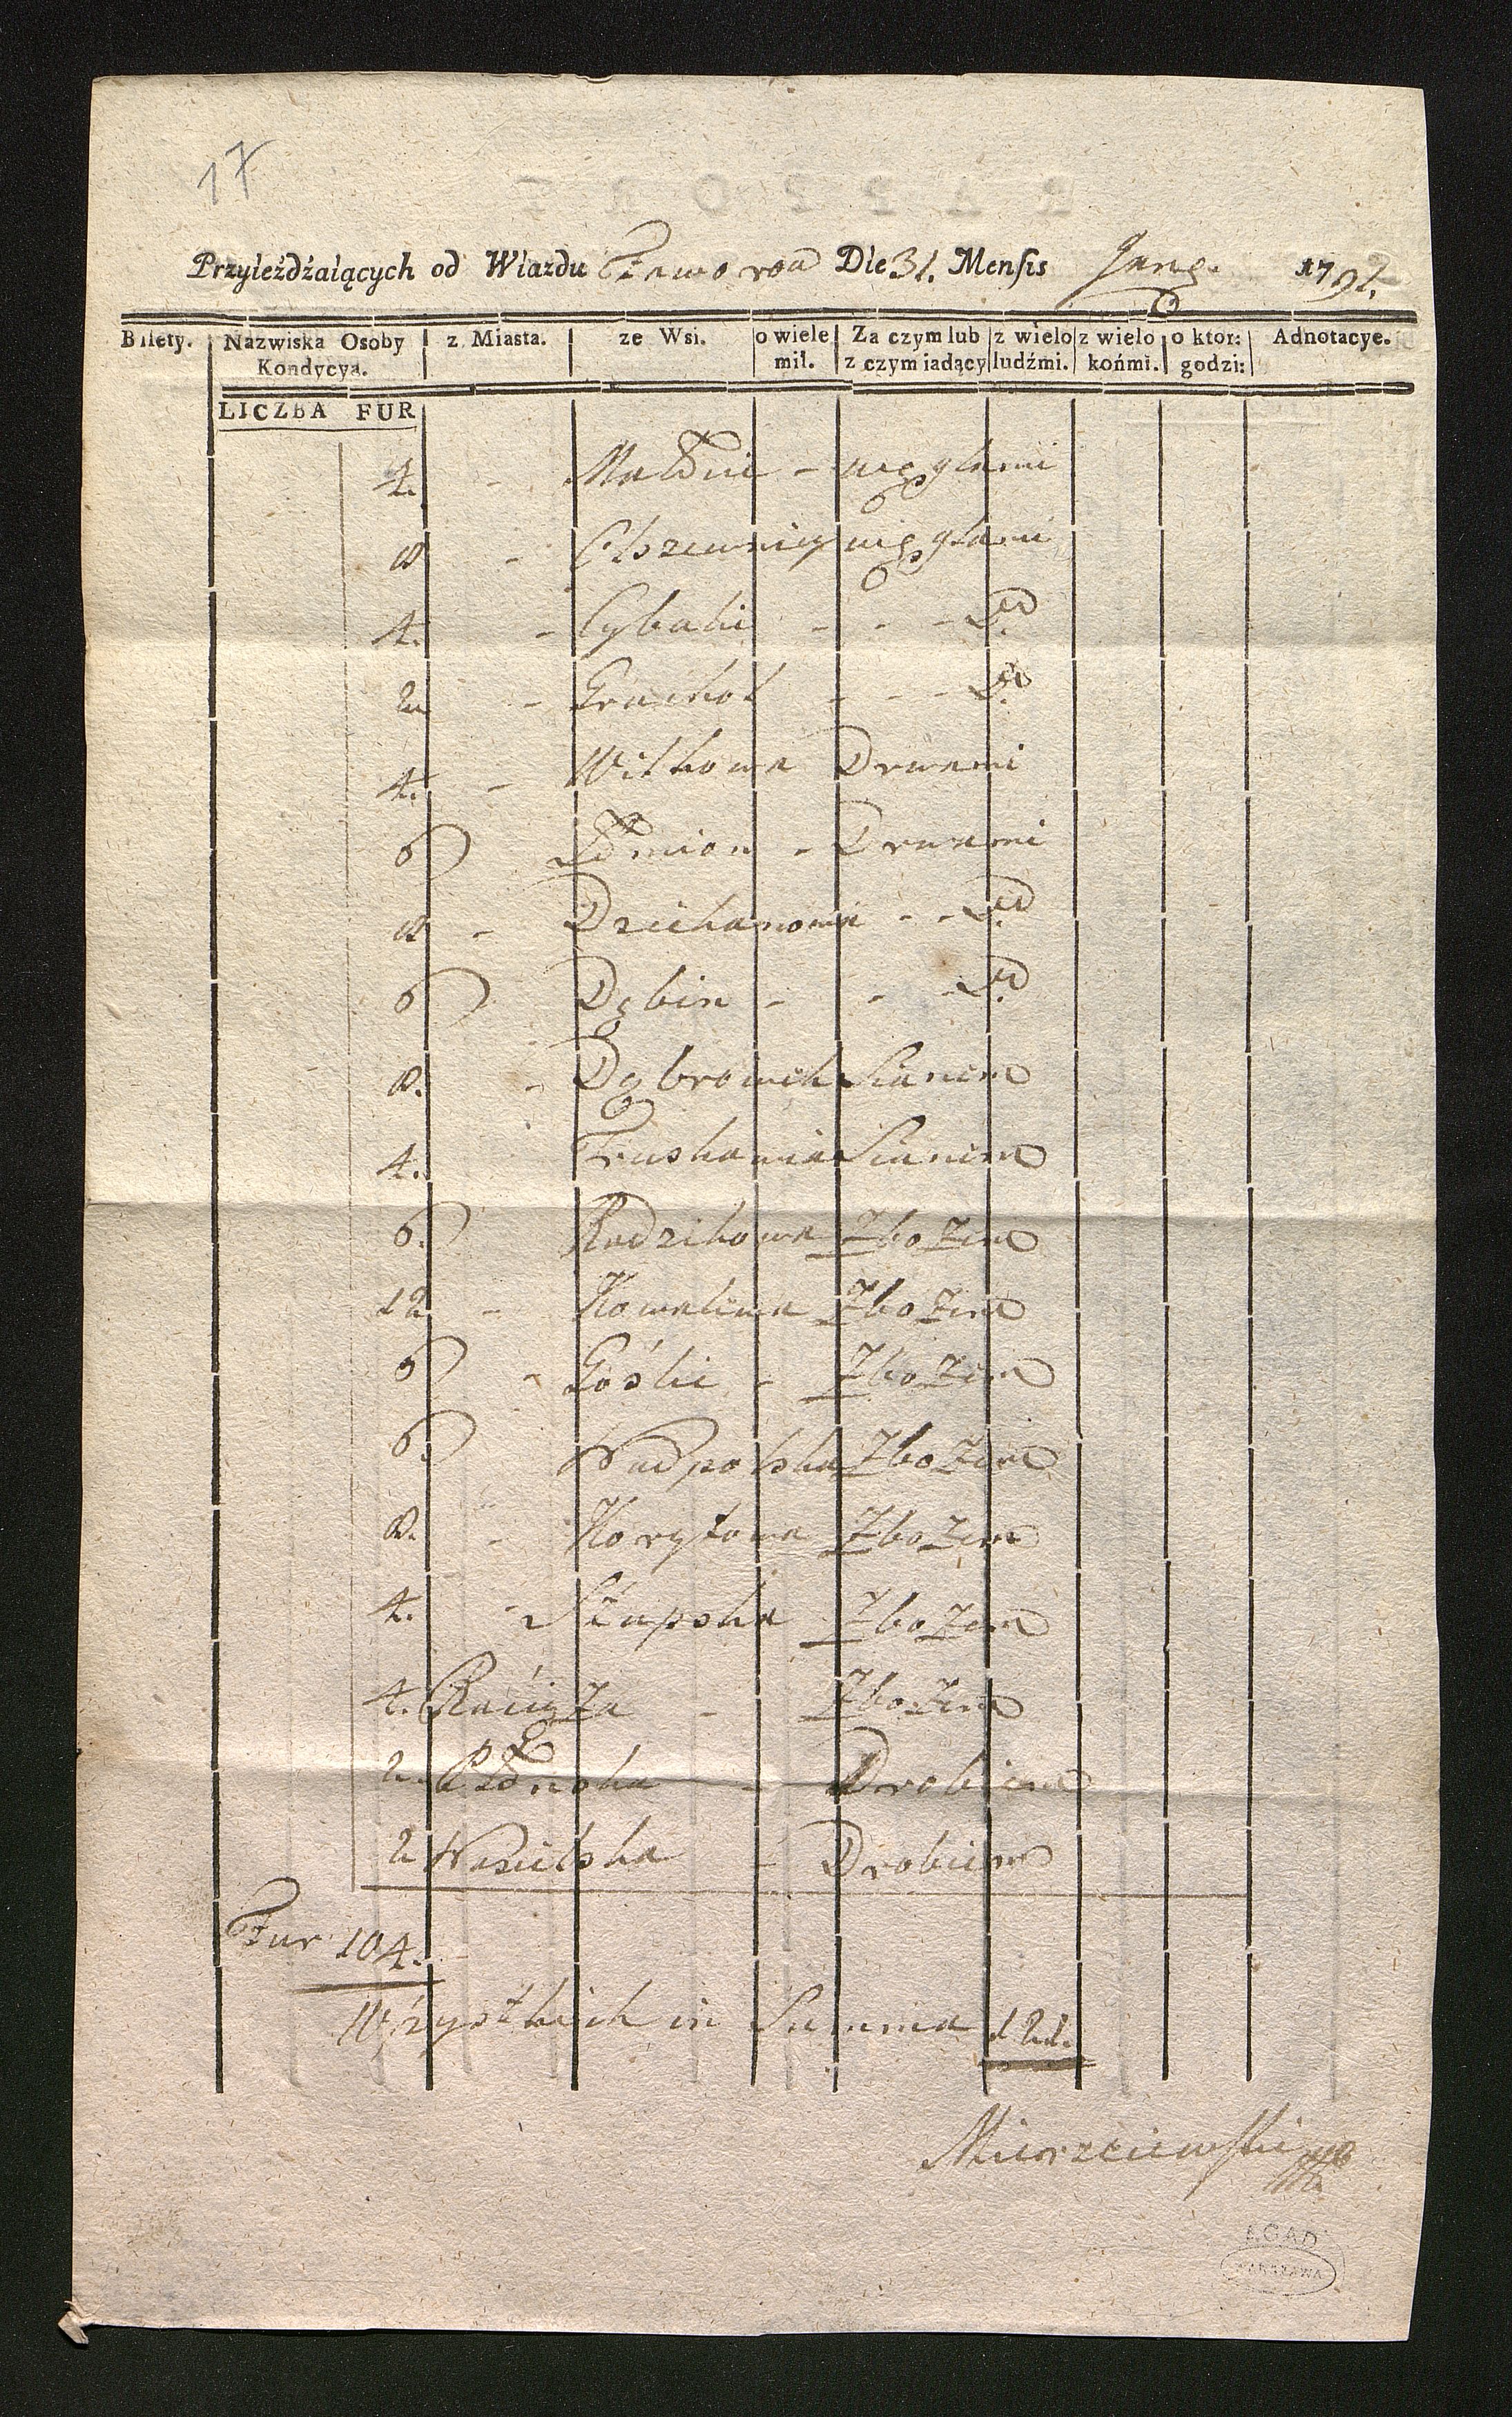 17
Przyieżdżaiących od Wiazdu Die 31. Mensis 1791.
Bilety. Nazwiska Osoby Kondycya. z Miasta. ze Wsi. o wiele mil. Za czym lub z czym iadący z wielo ludźmi. z wielo końmi. o ktor: godzi: Adnotacye.
LICZBA FUR
4. - - węglami
8 - węglami
4. - Cybulki - - - Do
2 - Grochol - - - Do
4. - Witkowa Drwami
6 - Drwami
8 - Dziekanowa - - Do
6 Dębin - - - Do
8. - Dąbrowek Sianem
4. Truskawia Sianem
6. Radzikowa Zbożem
12 - Kowalewa Zbożem
6 - Góski - Zbożem
6. Nadpolska Zbożem
8. - Korytowa Zbożem
4. - Słupska Zbożem
4. Raciąża - Zbożem
2. Płońska - Drobiem
2 Nasielska - Drobiem
Fur 104.
Wszystkich in Summa 121.
AGAD
WARSZAWA